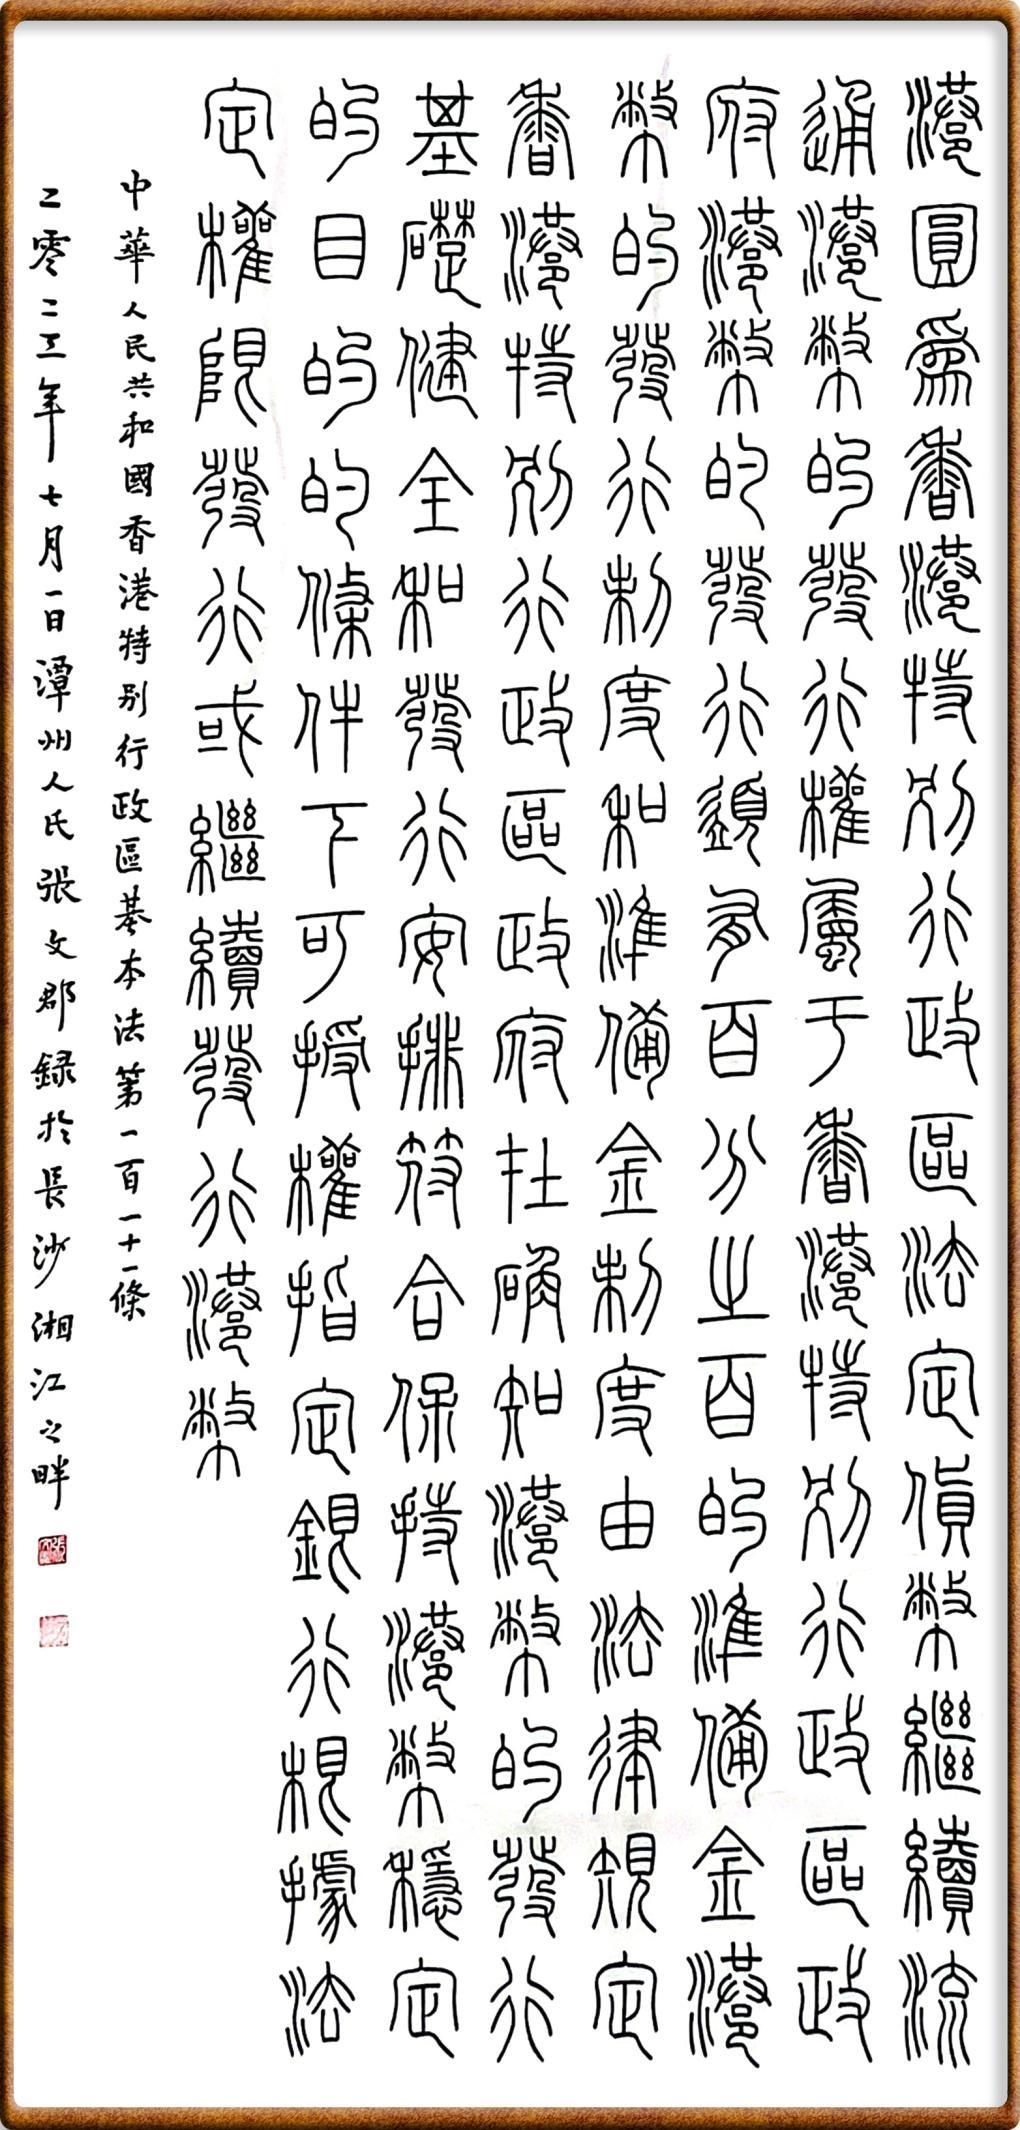 港圓為香港特別行政區法定貨幣繼續流
通港幣的發行權屬于香港特別行政區政
府港幣的發行須有百分之百的準備金港
幣的發行制度和準備金制度由法律規定
香港特別行政區政府在確知港幣的發行
基礎健全和發行安排符合保持港幣穩定
的目的的條件下可授權指定銀行根據法
定權限發行或繼續發行港幣
中華人民共和國香港特别行政區基本法第一百一十一條
二零二三年七月一日潭州人氏張文郡録於長沙湘江之畔